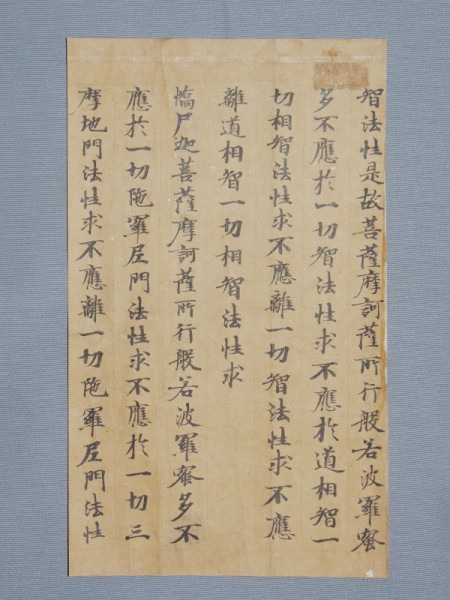 智法性是故菩薩摩訶薩所行般若波羅蜜
多不應於一切智法性求不應於道相智一
切相智法性求不應離一切智法性求不應
離道相智一切相智法性求
憍尸迦菩薩摩訶薩所行般若波羅蜜多不
應於一切陁羅尼門法性求不應於一切三
摩地門法性求不應離一切陁羅尼門法性